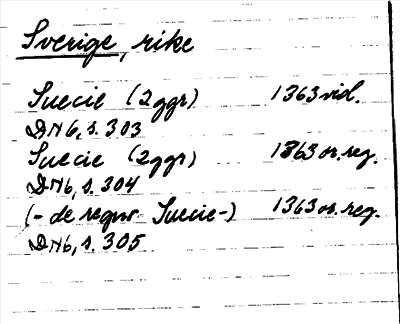 Sverige, rike
Suecie (2ggr) 1363 vid.
DN6, s. 303
Suecie (2ggr) 1363 or. reg.
DN6, s. 304
(- de regno Suecie -) 1363 or. reg.
DN6, s. 305